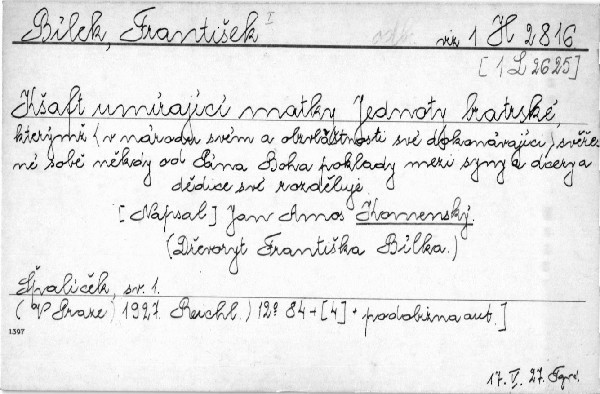 Bílek, František I viz 1 H 2816
[1 L 2625]
Kšaft umírající matky Jednoty bratrské,
kterýmž (v národu svém a obzvláštnosti své dokonávající) svěře-
né sobě někdy od Pána Boha poklady mezi syny a dcery a
dědice své rozděluje.
[Napsal] Jan Amos Komenský.
(Dřevoryt Františka Bílka.)
Špalíček, sv. 1.
(V Praze) 1927. Reichl.) 12° 84+[4] + podobizna aut.]
1397
17. V. 27.